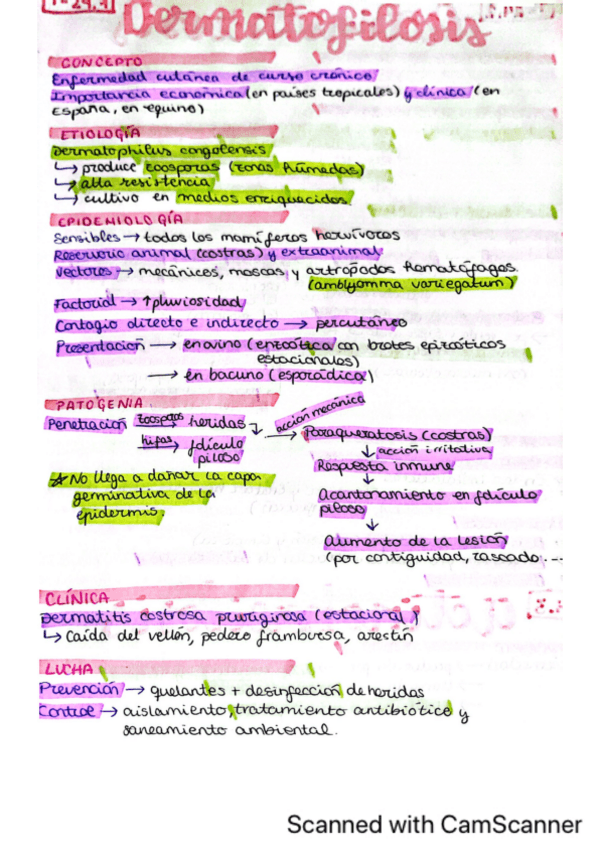 Dermatofilosis
CONCEPTO
Enfermedad cutánea de curso crónico
Importancia económica (en países tropicales) y clínica (en
España, en equino)
ETIOLOGÍA
Dermatophilus congolensis
↳ produce zoosporas (zonas húmedas)
↳ alta resistencia
↳ cultivo en medios enriquecidos
EPIDEMIOLOGÍA
Sensibles → todos los mamíferos hervívoros
Reservorio animal (costras) y extraanimal
Vectores → mecánicos, moscas, y artropodos hematófagos.
(amblyomma variegatum)
Factorial → ↑ pluviosidad
Contagio directo e indirecto → percutáneo
Presentación → en ovino (enzoótica con brotes epizoóticos
estacionales)
→ en bacuno (esporádica)
PATOGENIA
Penetración zoosporas heridas
hifas folículo
piloso
acción mecánica
Paraqueratosis (costras)
↓ acción irritativa
Respuesta inmune
↓
Acantonamiento en folículo
piloso
↓
Aumento de la lesión
(por contiguidad, rascado...
* No llega a dañar la capa
germinativa de la
epidermis.
CLÍNICA
Dermatitis costrosa pruriginosa (estacional)
↳ Caída del vellón, pedero frambuesa, arestín
LUCHA
Prevención → quelantes + desinfección de heridas
Control → aislamiento, tratamiento antibiótico y
saneamiento ambiental.
Scanned with CamScanner